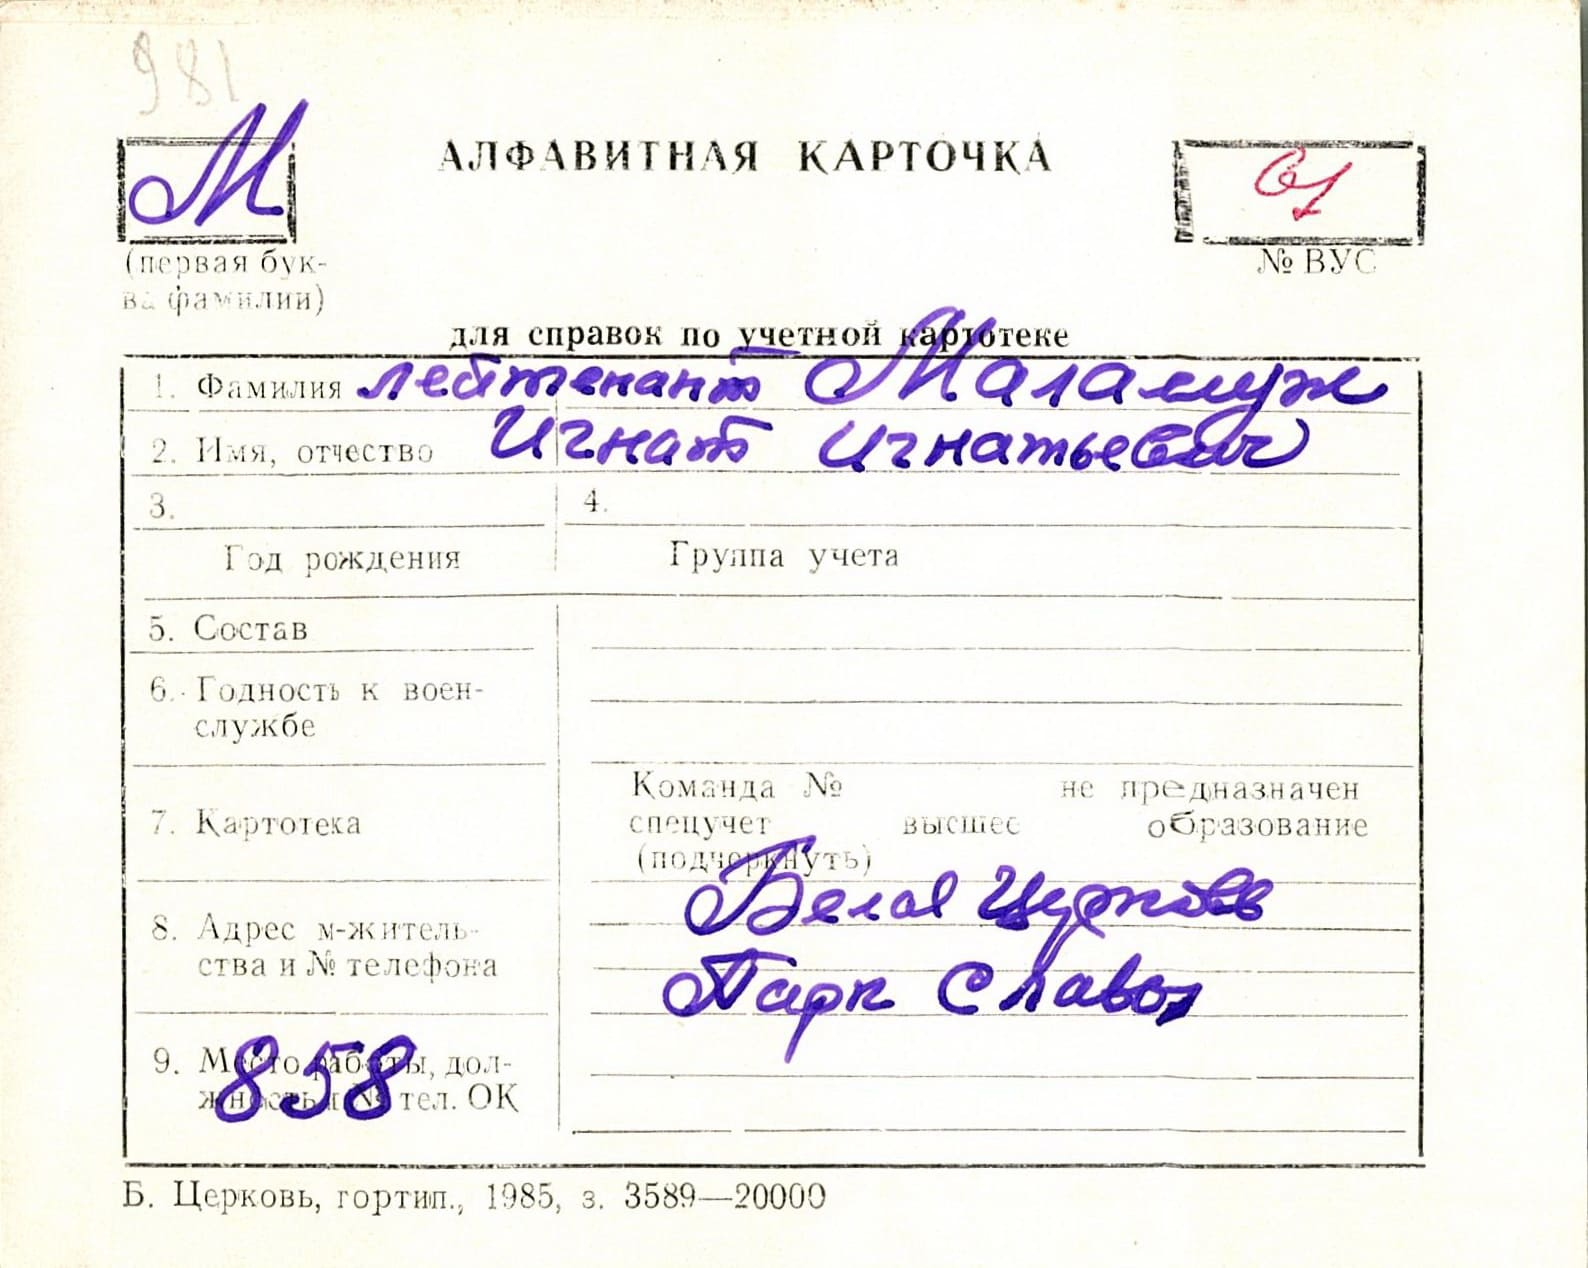 981
М
АЛФАВИТНАЯ КАРТОЧКА
(первая бук-
ва фамилии)
№ ВУС
для справок по учетной картотеке
1. Фамилия лейтенант Маламуж
2. Имя, отчество Игнат Игнатьевич
3. 4.
Год рождения Группа учета
5. Состав
6. Годность к воен-
службе
7. Картотека
Команда № не предназначен
спецучет высшее образование
(подчеркнуть)
8. Адрес м-житель-
ства и № телефона
Белая Церковь
Парк Славы
9. Место работы, дол-
жность и № тел. ОК
858
Б. Церковь, гортип., 1985, з. 3589—20000